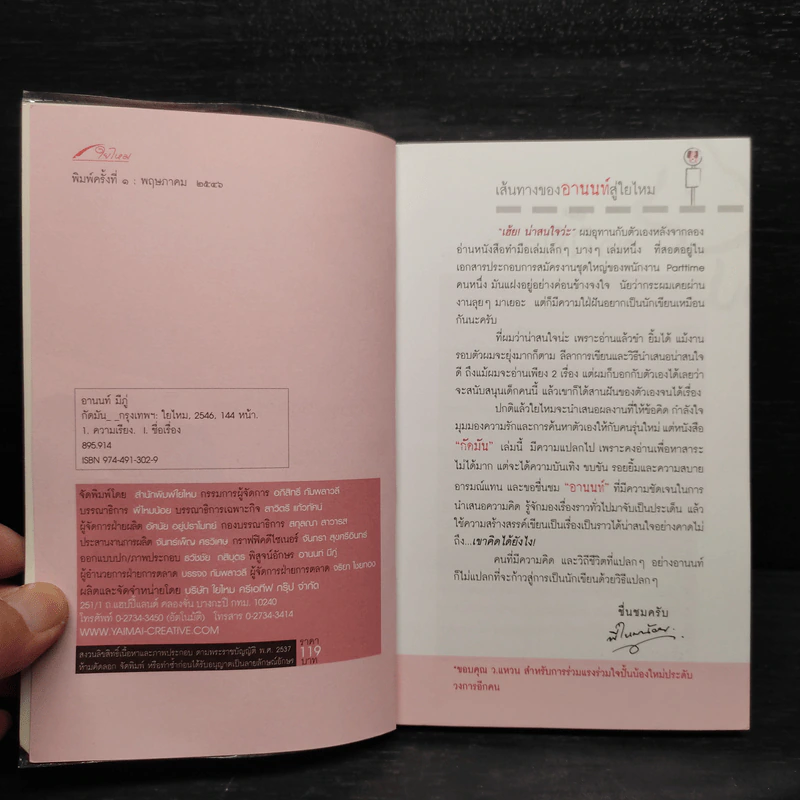 ใยไหม
พิมพ์ครั้งที่ ๑ : พฤษภาคม ๒๕๔๖
อานนท์ มีภู่
กัดมัน_ _กรุงเทพฯ: ใยไหม, 2546, 144 หน้า.
1. ความเรียง. I. ชื่อเรื่อง
895.914
ISBN 974-491-302-9
จัดพิมพ์โดย สำนักพิมพ์ใยไหม กรรมการผู้จัดการ อภิสิทธิ์ กัมพลาวลี
บรรณาธิการ พี่ไหมน้อย บรรณาธิการเฉพาะกิจ สาวิตรี แก้วทัศน์
ผู้จัดการฝ่ายผลิต อัศนัย อยู่ปราโมทย์ กองบรรณาธิการ สกุลณา สาวารส
ประสานงานการผลิต จันทร์เพ็ญ ศรวิเศษ กราฟฟิคดีไซเนอร์ จันทรา สุขศรีอินทร์
ออกแบบปก/ภาพประกอบ ธวัชชัย กสิบุตร พิสูจน์อักษร อานนท์ มีภู่
ผู้อำนวยการฝ่ายการตลาด บรรจง กัมพลาวลี ผู้จัดการฝ่ายการตลาด จริยา ไชยาจง
ผลิตและจัดจำหน่ายโดย บริษัท ใยไหม ครีเอทีฟ กรุ๊ป จำกัด
251/1 ถ.แฮปปี้แลนด์ คลองจั่น บางกะปิ กทม. 10240
โทรศัพท์ 0-2734-3450 (อัตโนมัติ) โทรสาร 0-2734-3414
WWW.YAIMAI-CREATIVE.COM
สงวนลิขสิทธิ์เนื้อหาและภาพประกอบ ตามพระราชบัญญัติ พ.ศ. 2537
ห้ามคัดลอก จัดพิมพ์ หรือทำซ้ำก่อนได้รับอนุญาตเป็นลายลักษณ์อักษร
ราคา
119
บาท
เส้นทางของอานนท์สู่ใยไหม
"เฮ้ย! น่าสนใจว่ะ" ผมอุทานกับตัวเองหลังจากลอง
อ่านหนังสือทำมือเล่มเล็กๆ บางๆ เล่มหนึ่ง ที่สอดอยู่ใน
เอกสารประกอบการสมัครงานชุดใหญ่ของพนักงาน Parttime
คนหนึ่ง มันแฝงอยู่อย่างค่อนข้างจงใจ นัยว่ากระผมเคยผ่าน
งานลุยๆ มาเยอะ แต่ก็มีความใฝ่ฝันอยากเป็นนักเขียนเหมือน
กันนะครับ
ที่ผมว่าน่าสนใจน่ะ เพราะอ่านแล้วขำ ยิ้มได้ แม้งาน
รอบตัวผมจะยุ่งมากก็ตาม ลีลาการเขียนและวิธีนำเสนอน่าสนใจ
ดี ถึงแม้ผมจะอ่านเพียง 2 เรื่อง แต่ผมก็บอกกับตัวเองได้เลยว่า
จะสนับสนุนเด็กคนนี้ แล้วเขาก็ได้สานฝันของตัวเองจนได้เรื่อง
ปกติแล้วใยไหมจะนำเสนอผลงานที่ให้ข้อคิด กำลังใจ
มุมมองความรักและการค้นหาตัวเองให้กับคนรุ่นใหม่ แต่หนังสือ
"กัดมัน" เล่มนี้ มีความแปลกไป เพราะคงอ่านเพื่อหาสาระ
ไม่ได้มาก แต่จะได้ความบันเทิง ขบขัน รอยยิ้มและความสบาย
อารมณ์แทน และขอชื่นชม "อานนท์" ที่มีความชัดเจนในการ
นำเสนอความคิด รู้จักมองเรื่องราวทั่วไปมาจับเป็นประเด็น แล้ว
ใช้ความสร้างสรรค์เขียนเป็นเรื่องเป็นราวได้น่าสนใจอย่างคาดไม่
ถึง...เขาคิดได้ยังไง!
คนที่มีความคิด และวิถีชีวิตที่แปลกๆ อย่างอานนท์
ก็ไม่แปลกที่จะก้าวสู่การเป็นนักเขียนด้วยวิธีแปลกๆ
ชื่นชมครับ
พี่ไหมน้อย
*ขอบคุณ ว.แหวน สำหรับการร่วมแรงร่วมใจปั้นน้องใหม่ประดับ
วงการอีกคน